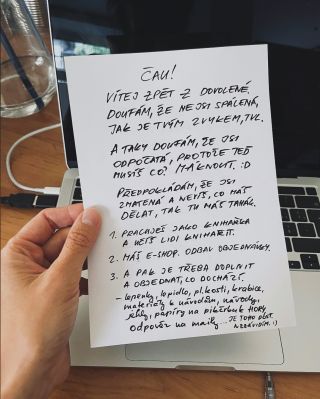 ČAU!
VÍTEJ ZPĚT Z DOVOLENÉ,
DOUFÁM, ŽE NEJSI SPÁLENÁ,
JAK JE TVÝM ZVYKEM, TVL.
A TAKY DOUFÁM, ŽE JSI
ODPOČATÁ, PROTOŽE TEĎ
MUSÍŠ CO? MÁKNOUT. :D
PŘEDPOKLÁDÁM, ŽE JSI
ZMATENÁ A NEVÍŠ, CO MÁŠ
DĚLAT, TAK TU MÁŠ TAHÁK.
1. PRACUJEŠ JAKO KNIHAŘKA
A UČÍŠ LIDI KNIHAŘIT.
2. MÁŠ E-SHOP. ODBAV OBJEDNÁVKY.
3. A PAK JE TŘEBA DOPLNIT
A OBJEDNAT, CO DOCHÁZÍ.
- lepenky, lepidlo, pl. kosti, krabice,
materiály k návodům, návody,
jehly, papíry na HORY,
odpověz na maily... JE TOHO DOST.
NEZÁVIDÍM. :)